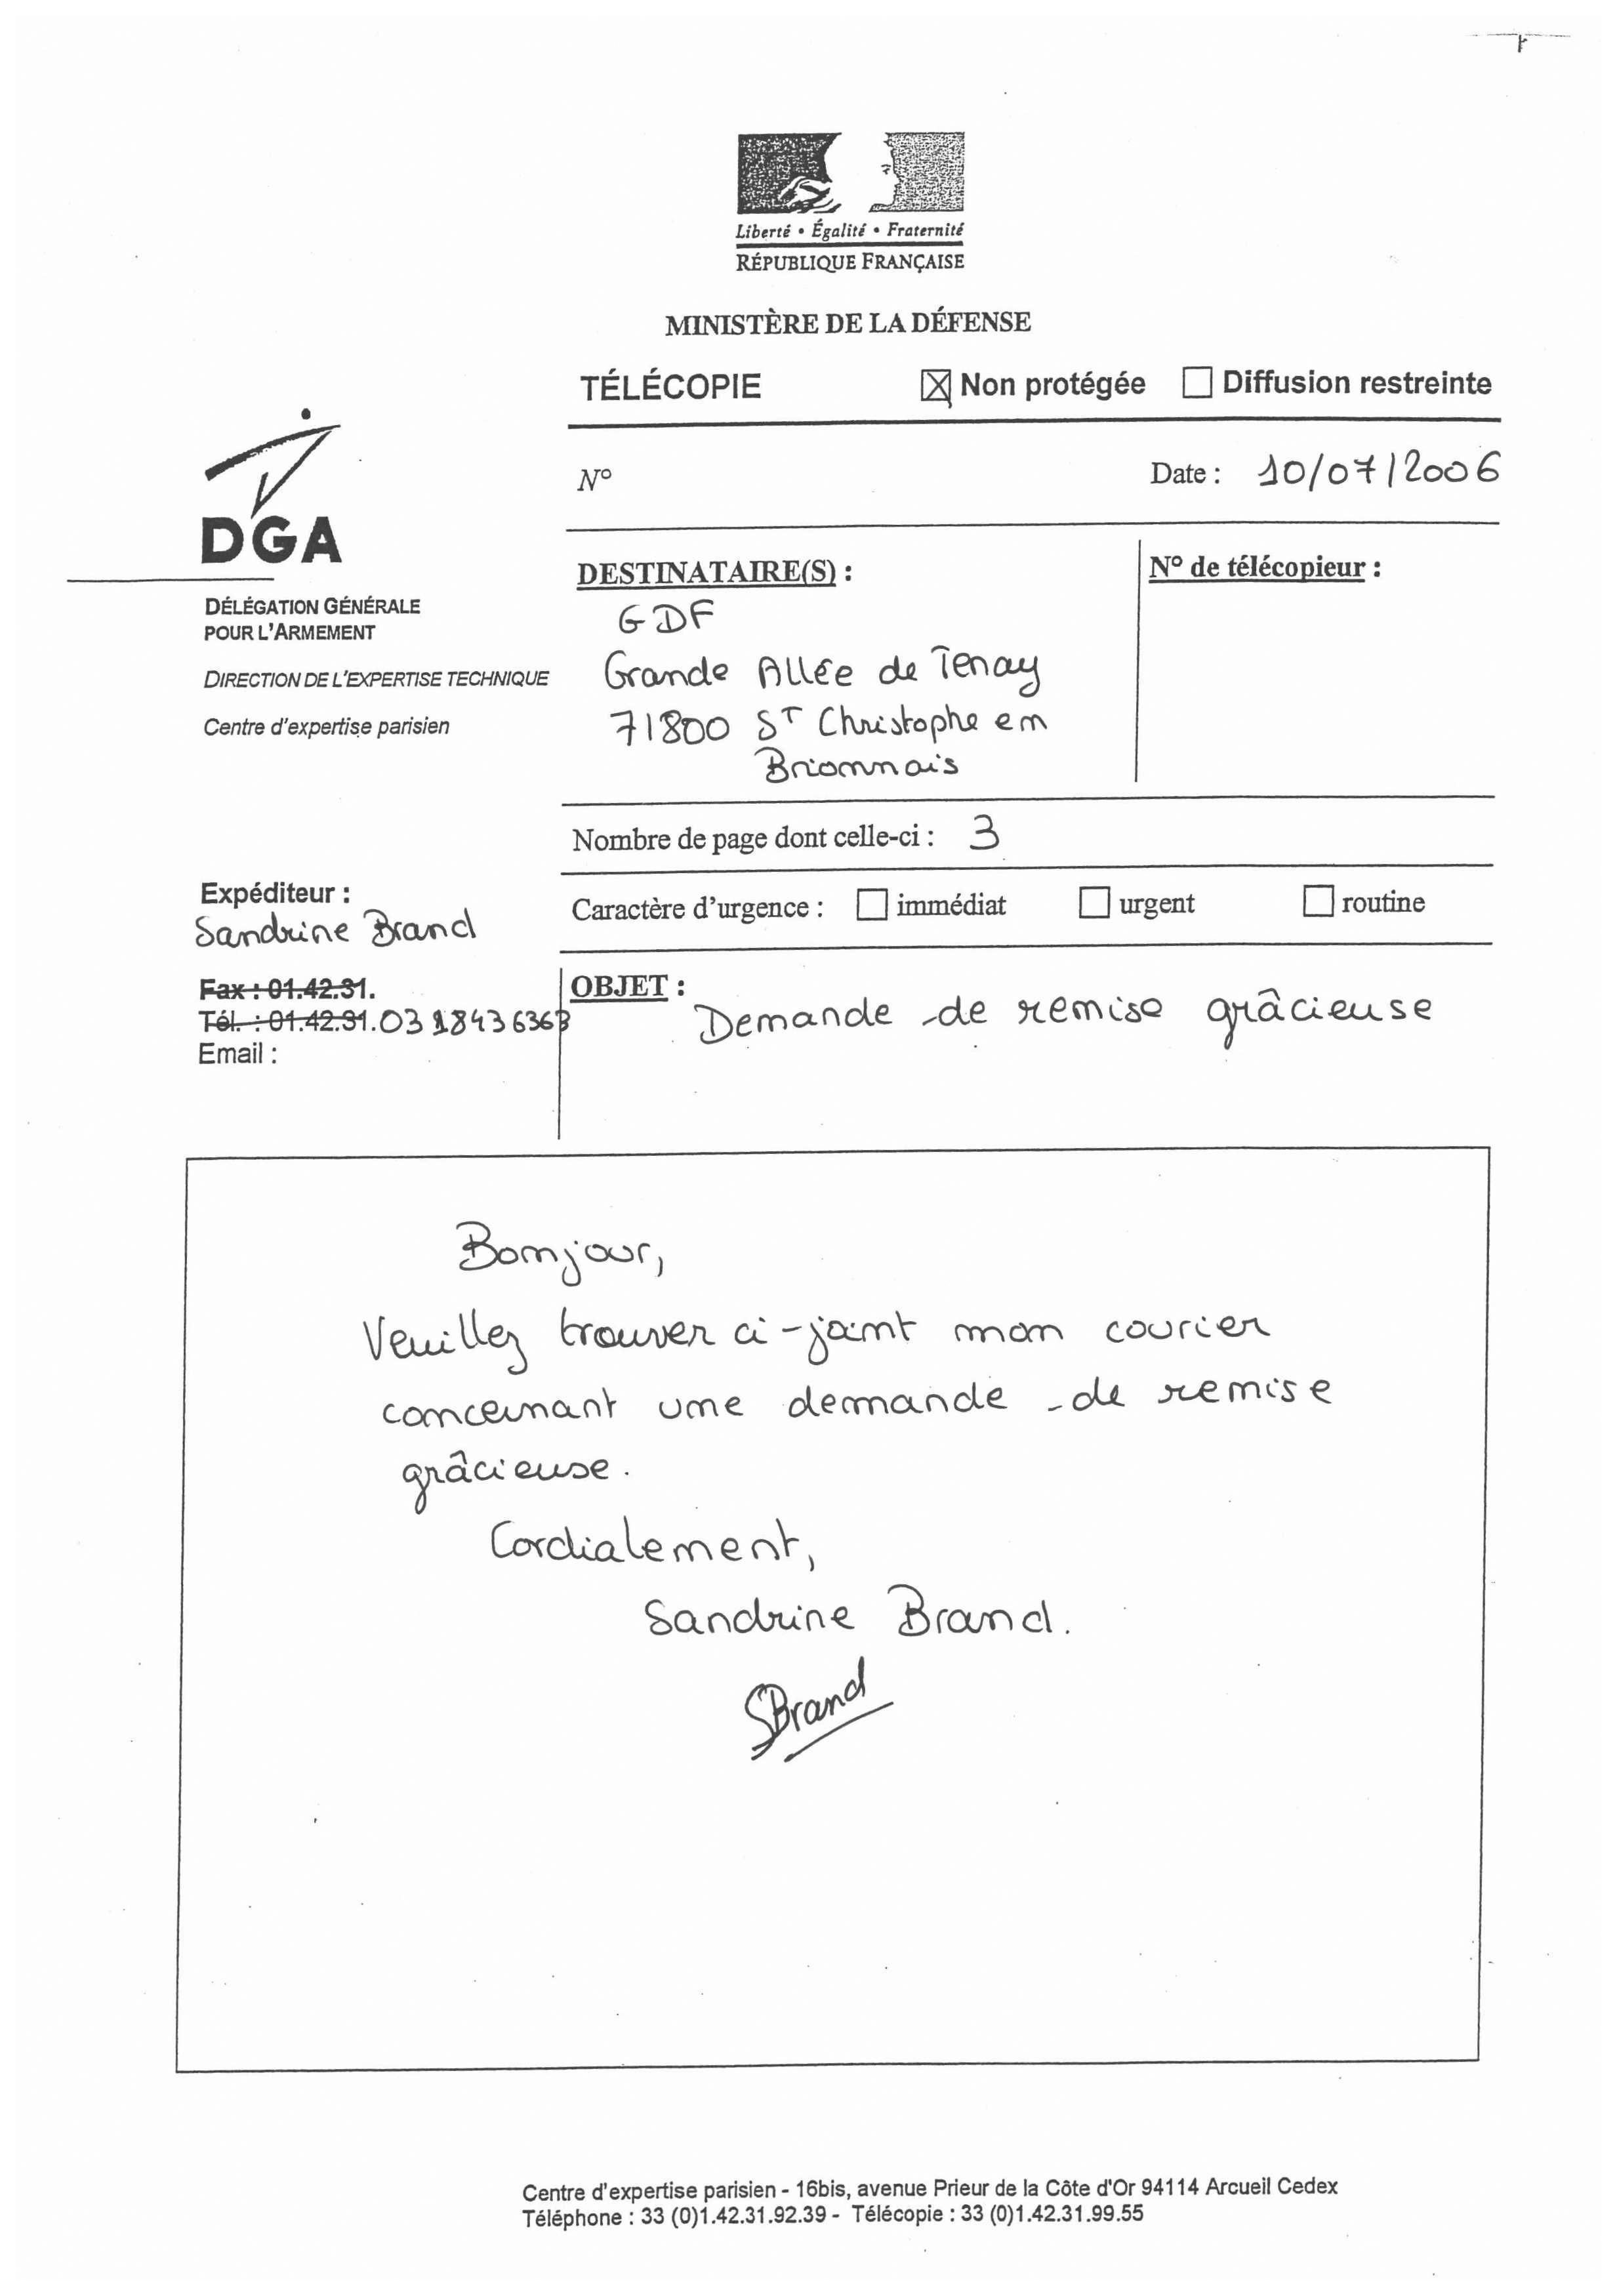 Liberté • Égalité • Fraternité
RÉPUBLIQUE FRANÇAISE
MINISTÈRE DE LA DÉFENSE
TÉLÉCOPIE ☒ Non protégée ☐ Diffusion restreinte
N° Date : 10/07/2006
DGA
DÉLÉGATION GÉNÉRALE
POUR L'ARMEMENT
DIRECTION DE L'EXPERTISE TECHNIQUE
Centre d'expertise parisien
DESTINATAIRE(S) :
GDF
Grande Allée de Tenay
71800 ST Christophe en
Brionnais
N° de télécopieur :
Nombre de page dont celle-ci : 3
Expéditeur :
Sandrine Brand
Caractère d'urgence : ☐ immédiat ☐ urgent ☐ routine
Fax : 01.42.31.
Tél. : 01.42.31. 03 18436363
Email :
OBJET :
Demande de remise grâcieuse
Bonjour,
Veuillez trouver ci-joint mon courier
concernant une demande de remise
grâcieuse.
Cordialement,
Sandrine Brand.
SBrand
Centre d'expertise parisien - 16bis, avenue Prieur de la Côte d'Or 94114 Arcueil Cedex
Téléphone : 33 (0)1.42.31.92.39 - Télécopie : 33 (0)1.42.31.99.55